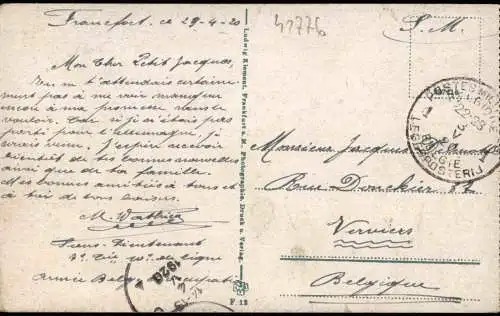 Francfort, ce 29-4-20
Mon Cher Petit Jacques,
Tu m'attendais certaine
ment pas à me voir manquer
encore à ma promesse sans le
vouloir. Car si j'étais pas
parti pour l'allemagne, je
serais venu. J'espère recevoir
bientôt de tes bonnes nouvelles
ainsi que de ta famille.
Mes bonnes amitiés à tous et à
toi de bons baisers.
M.
Sous-Lieutenant
de ligne
Armée Belge
1920
Ludwig Klement, Frankfurt a. M., Photographie, Druck u. Verlag.
F. 12
41776
S.M.
POSTES MIL
22-23
BELGIE
LEGERPOSTERIJ
Monsieur Jacques
Rue Donckier 32
Verviers
Belgique